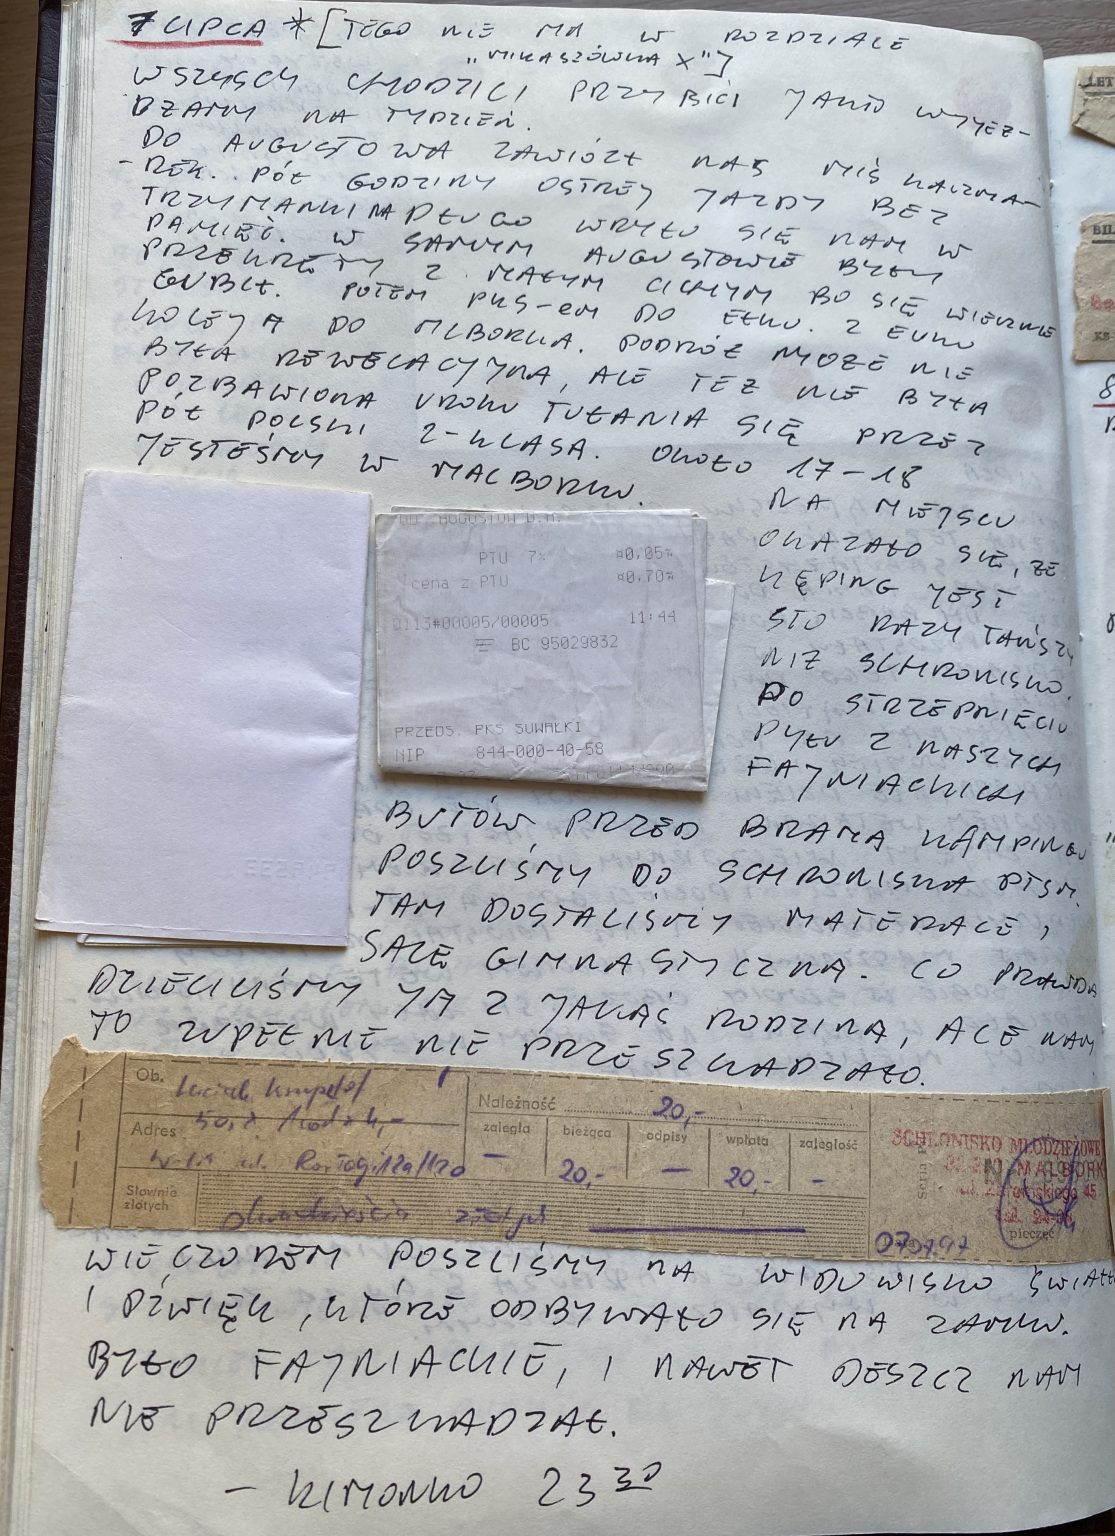 7 LIPCA * [TEGO NIE MA W ROZDZIALE
"MIKASZÓWKA X"]
WSZYSCY CHODZILI PRZYBICI JAKO WYJEŻ-
DŻAMY NA TYDZIEŃ.
DO AUGUSTOWA ZAWIÓZŁ NAS MIŚ KACZMA-
-REK. PÓŁ GODZINY OSTREJ JAZDY BEZ
TRZYMANKI NA DŁUGO WRYŁO SIĘ NAM W
PAMIĘĆ. W SAMYM AUGUSTOWIE BYŁY
PRZEKRĘTY Z MAŁYM CICHYM BO SIĘ WIECZNIE
GUBIŁ. POTEM PKS-em DO EŁKU. Z EŁKU
KOLEJĄ DO MLBORKA. PODRÓŻ MOŻE NIE
BYŁA REWELACYJNA, ALE TEŻ NIE BYŁA
POZBAWIONA UROKU TUŁANIA SIĘ PRZEZ
PÓŁ POLSKI 2-KLASĄ. OKOŁO 17-18
JESTEŚMY W MALBORKU.
NA MIEJSCU
OKAZAŁO SIĘ, ŻE
KĘPING JEST
STO RAZY TAŃSZY
NIŻ SCHRONISKO.
PO STRZEPNIĘCIU
PYŁU Z NASZYCH
FAJNIACKICH
PTU 7% ¤0,05*
cena z PTU ¤0,70*
0113#00005/00005 11:44
BC 95029832
PRZEDS. PKS SUWAŁKI
NIP 844-000-40-58
BUTÓW PRZED BRAMĄ KAMPINGU
POSZLIŚMY DO SCHRONISKA PTSM.
TAM DOSTALIŚMY MATERACE,
SALĘ GIMNASTYCZNĄ. CO PRAWDA
DZIELILIŚMY JĄ Z JAKĄŚ RODZINĄ, ALE NAM
TO ZUPEŁNIE NIE PRZESZKADZAŁO.
Ob.
Adres
Słownie złotych
Należność 20,-
zaległa bieżąca odpisy wpłata zaległość
- 20,- - 20,- -
dwadzieścia złotych
SCHRONISKO MŁODZIEŻOWE
MALBORK
ul. Żeromskiego 45
pieczęć
07.07.97
WIECZOREM POSZLIŚMY NA WIDOWISKO ŚWIATŁO
I DŹWIĘK, KTÓRE ODBYWAŁO SIĘ NA ZAMKU.
BYŁO FAJNIACKIE, I NAWET DESZCZ NAM
NIE PRZESZKADZAŁ.
- KIMONKO 23 30